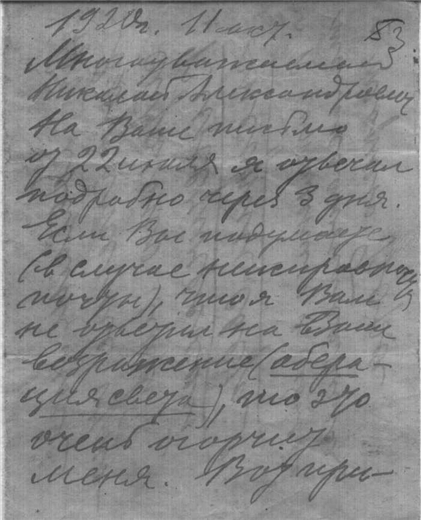 1920г. 11 окт. 83
Многоуважаемый
Николай Александрович
На Ваше письмо
от 22 июля я отвечал
подробно через 3 дня.
Если Вы подумаете
(в случае неисправности
почты), что я Вам
не ответил на Ваши
возражение (абера-
ция света), то это
очень огорчит
меня. Вот при-